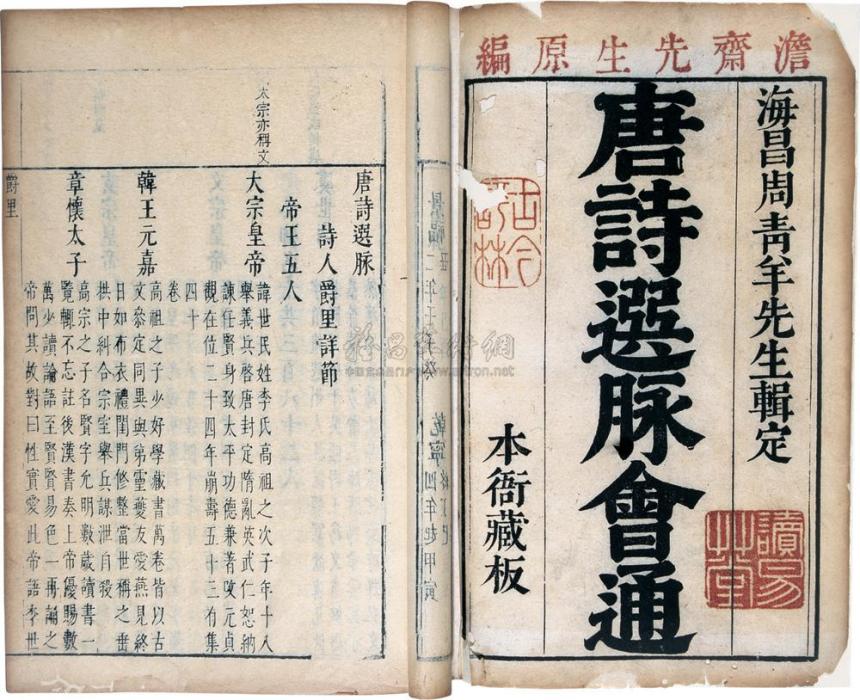 澹齋先生原編
海昌周青羊先生輯定
唐詩選脉會通
本衙藏板
古今
讀易
草堂
唐詩選脉
詩人爵里詳節
帝王五人
太宗亦稱文
大宗皇帝
諱世民姓李氏高祖之次子年十八
舉義兵啓唐封定隋亂英武仁恕納
諫任賢身致太平功德兼著改元貞
觀在位二十四年崩壽五十三有集
四十卷
韓王元嘉
高祖之子少好學藏書萬卷皆以古
文參定同異與弟靈夔友愛燕見終
日如布衣禮閨門修整當世稱之垂
拱中糾合宗室舉兵謀泄自殺
章懷太子
高宗之子名賢字允明數歲讀書一
覽輒不忘註後漢書奏上帝優賜數
萬少讀論語至賢賢易色一再誦之
帝問其故對曰性實愛此帝語李世
爵里
乾寧四年起甲寅